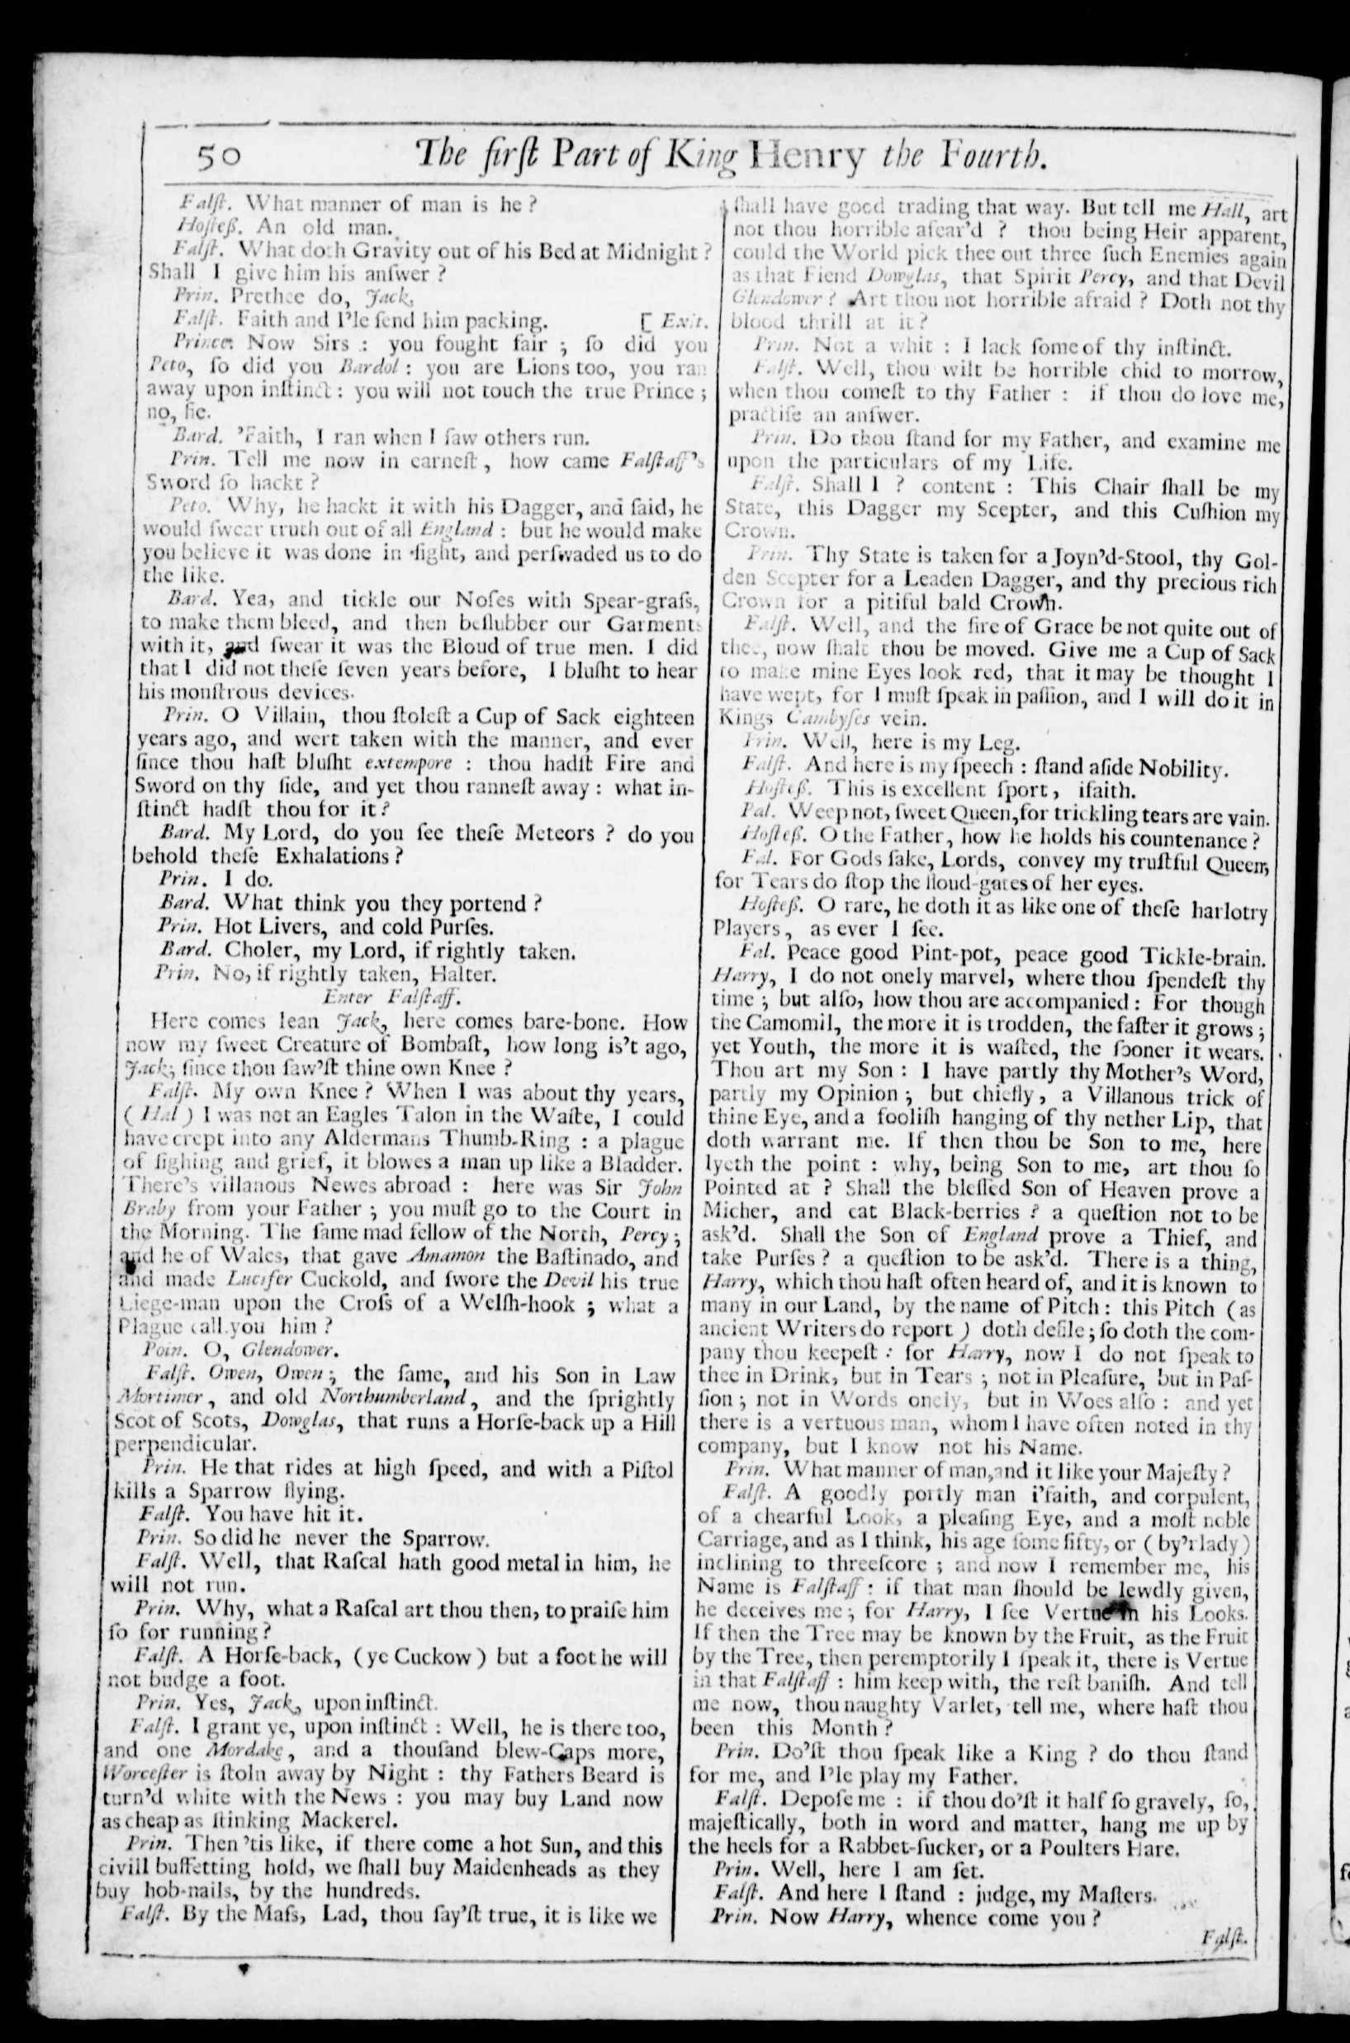 50 The firſt Part of King Henry the Fourth.
Falſt. What manner of man is he?
Hoſteſs. An old man.
Falſt. What doth Gravity out of his Bed at Midnight?
Shall I give him his anſwer?
Prin. Prethee do, Jack.
Falſt. Faith and I'le ſend him packing. [Exit.
Prince. Now Sirs: you fought fair; ſo did you
Peto, ſo did you Bardol: you are Lions too, you ran
away upon inſtinct: you will not touch the true Prince;
no, fie.
Bard. 'Faith, I ran when I ſaw others run.
Prin. Tell me now in earneſt, how came Falſtaff's
Sword ſo hackt?
Peto. Why, he hackt it with his Dagger, and ſaid, he
would ſwear truth out of all England: but he would make
you believe it was done in fight, and perſwaded us to do
the like.
Bard. Yea, and tickle our Noſes with Spear-graſs,
to make them bleed, and then beſlubber our Garments
with it, and ſwear it was the Bloud of true men. I did
that I did not theſe ſeven years before, I bluſht to hear
his monſtrous devices.
Prin. O Villain, thou ſtoleſt a Cup of Sack eighteen
years ago, and wert taken with the manner, and ever
ſince thou haſt bluſht extempore: thou hadſt Fire and
Sword on thy ſide, and yet thou ranneſt away: what in-
ſtinct hadſt thou for it?
Bard. My Lord, do you ſee theſe Meteors? do you
behold theſe Exhalations?
Prin. I do.
Bard. What think you they portend?
Prin. Hot Livers, and cold Purſes.
Bard. Choler, my Lord, if rightly taken.
Prin. No, if rightly taken, Halter.
Enter Falſtaff.
Here comes lean Jack, here comes bare-bone. How
now my ſweet Creature of Bombaſt, how long is't ago,
Jack, ſince thou ſaw'ſt thine own Knee?
Falſt. My own Knee? When I was about thy years,
(Hal) I was not an Eagles Talon in the Waſte, I could
have crept into any Aldermans Thumb-Ring: a plague
of ſighing and grief, it blowes a man up like a Bladder.
There's villanous Newes abroad: here was Sir John
Braby from your Father; you muſt go to the Court in
the Morning. The ſame mad fellow of the North, Percy;
and he of Wales, that gave Amamon the Baſtinado, and
and made Lucifer Cuckold, and ſwore the Devil his true
Liege-man upon the Croſs of a Welſh-hook; what a
Plague call you him?
Poin. O, Glendower.
Falſt. Owen, Owen; the ſame, and his Son in Law
Mortimer, and old Northumberland, and the ſprightly
Scot of Scots, Dowglas, that runs a Horſe-back up a Hill
perpendicular.
Prin. He that rides at high ſpeed, and with a Piſtol
kills a Sparrow flying.
Falſt. You have hit it.
Prin. So did he never the Sparrow.
Falſt. Well, that Raſcal hath good metal in him, he
will not run.
Prin. Why, what a Raſcal art thou then, to praiſe him
ſo for running?
Falſt. A Horſe-back, (ye Cuckow) but a foot he will
not budge a foot.
Prin. Yes, Jack, upon inſtinct.
Falſt. I grant ye, upon inſtinct: Well, he is there too,
and one Mordake, and a thouſand blew-Caps more,
Worceſter is ſtoln away by Night: thy Fathers Beard is
turn'd white with the News: you may buy Land now
as cheap as ſtinking Mackerel.
Prin. Then 'tis like, if there come a hot Sun, and this
civill buffetting hold, we ſhall buy Maidenheads as they
buy hob-nails, by the hundreds.
Falſt. By the Maſs, Lad, thou ſay'ſt true, it is like we
ſhall have good trading that way. But tell me Hall, art
not thou horrible afear'd? thou being Heir apparent,
could the World pick thee out three ſuch Enemies again
as that Fiend Dowglas, that Spirit Percy, and that Devil
Glendower? Art thou not horrible afraid? Doth not thy
blood thrill at it?
Prin. Not a whit: I lack ſome of thy inſtinct.
Falſt. Well, thou wilt be horrible chid to morrow,
when thou comeſt to thy Father: if thou do love me,
practiſe an anſwer.
Prin. Do thou ſtand for my Father, and examine me
upon the particulars of my Life.
Falſt. Shall I? content: This Chair ſhall be my
State, this Dagger my Scepter, and this Cuſhion my
Crown.
Prin. Thy State is taken for a Joyn'd-Stool, thy Gol-
den Scepter for a Leaden Dagger, and thy precious rich
Crown for a pitiful bald Crown.
Falſt. Well, and the fire of Grace be not quite out of
thee, now ſhalt thou be moved. Give me a Cup of Sack
to make mine Eyes look red, that it may be thought I
have wept, for I muſt ſpeak in paſſion, and I will do it in
Kings Cambyſes vein.
Prin. Well, here is my Leg.
Falſt. And here is my ſpeech: ſtand aſide Nobility.
Hoſteſs. This is excellent ſport, ifaith.
Fal. Weep not, ſweet Queen, for trickling tears are vain.
Hoſteſs. O the Father, how he holds his countenance?
Fal. For Gods ſake, Lords, convey my truſtful Queen,
for Tears do ſtop the floud-gates of her eyes.
Hoſteſs. O rare, he doth it as like one of theſe harlotry
Players, as ever I ſee.
Fal. Peace good Pint-pot, peace good Tickle-brain.
Harry, I do not onely marvel, where thou ſpendeſt thy
time; but alſo, how thou are accompanied: For though
the Camomil, the more it is trodden, the faſter it grows;
yet Youth, the more it is waſted, the ſooner it wears.
Thou art my Son: I have partly thy Mother's Word,
partly my Opinion; but chiefly, a Villanous trick of
thine Eye, and a fooliſh hanging of thy nether Lip, that
doth warrant me. If then thou be Son to me, here
lyeth the point: why, being Son to me, art thou ſo
Pointed at? Shall the bleſſed Son of Heaven prove a
Micher, and eat Black-berries? a queſtion not to be
ask'd. Shall the Son of England prove a Thief, and
take Purſes? a queſtion to be ask'd. There is a thing,
Harry, which thou haſt often heard of, and it is known to
many in our Land, by the name of Pitch: this Pitch (as
ancient Writers do report) doth defile; ſo doth the com-
pany thou keepeſt: for Harry, now I do not ſpeak to
thee in Drink, but in Tears; not in Pleaſure, but in Paſ-
ſion; not in Words onely, but in Woes alſo: and yet
there is a vertuous man, whom I have often noted in thy
company, but I know not his Name.
Prin. What manner of man, and it like your Majeſty?
Falſt. A goodly portly man i'faith, and corpulent,
of a chearful Look, a pleaſing Eye, and a moſt noble
Carriage, and as I think, his age ſome fifty, or (by'r lady)
inclining to threeſcore; and now I remember me, his
Name is Falſtaff: if that man ſhould be lewdly given,
he deceives me; for Harry, I ſee Vertue in his Looks.
If then the Tree may be known by the Fruit, as the Fruit
by the Tree, then peremptorily I ſpeak it, there is Vertue
in that Falſtaff: him keep with, the reſt baniſh. And tell
me now, thou naughty Varlet, tell me, where haſt thou
been this Month?
Prin. Do'ſt thou ſpeak like a King? do thou ſtand
for me, and I'le play my Father.
Falſt. Depoſe me: if thou do'ſt it half ſo gravely, ſo,
majeſtically, both in word and matter, hang me up by
the heels for a Rabbet-ſucker, or a Poulters Hare.
Prin. Well, here I am ſet.
Falſt. And here I ſtand: judge, my Maſters.
Prin. Now Harry, whence come you?
Falſt.